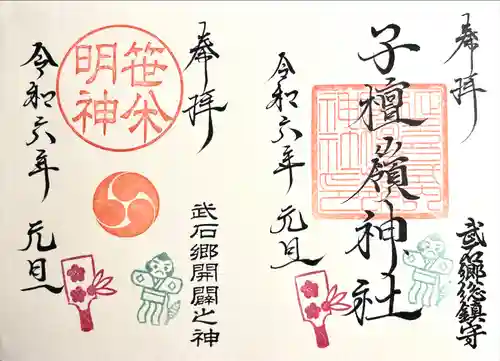 奉拝
武石郷総鎮守
子檀嶺神社
令和六年
元旦
奉拝
武石郷開闢之神
笹焼
明神
令和六年
元旦